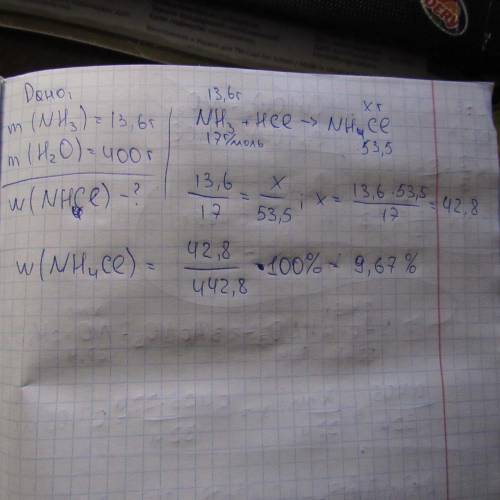 Дано:
m(NH₃)=13,6г
m(H₂O)=400г
w(NH₄Cl)-?
13,6г xг
NH₃ + HCl → NH₄Cl
17г/моль 53,5
13,6/17 = x/53,5; x = 13,6·53,5/17 = 42,8
w(NH₄Cl) = 42,8/442,8 · 100% = 9,67%